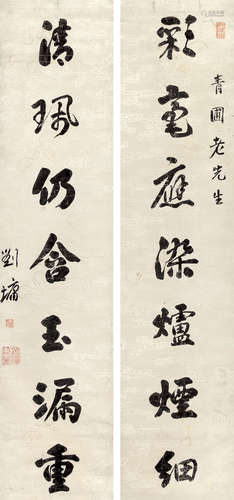 青圃老先生
彩毫應染爐煙細
清珮仍含玉漏重
劉墉